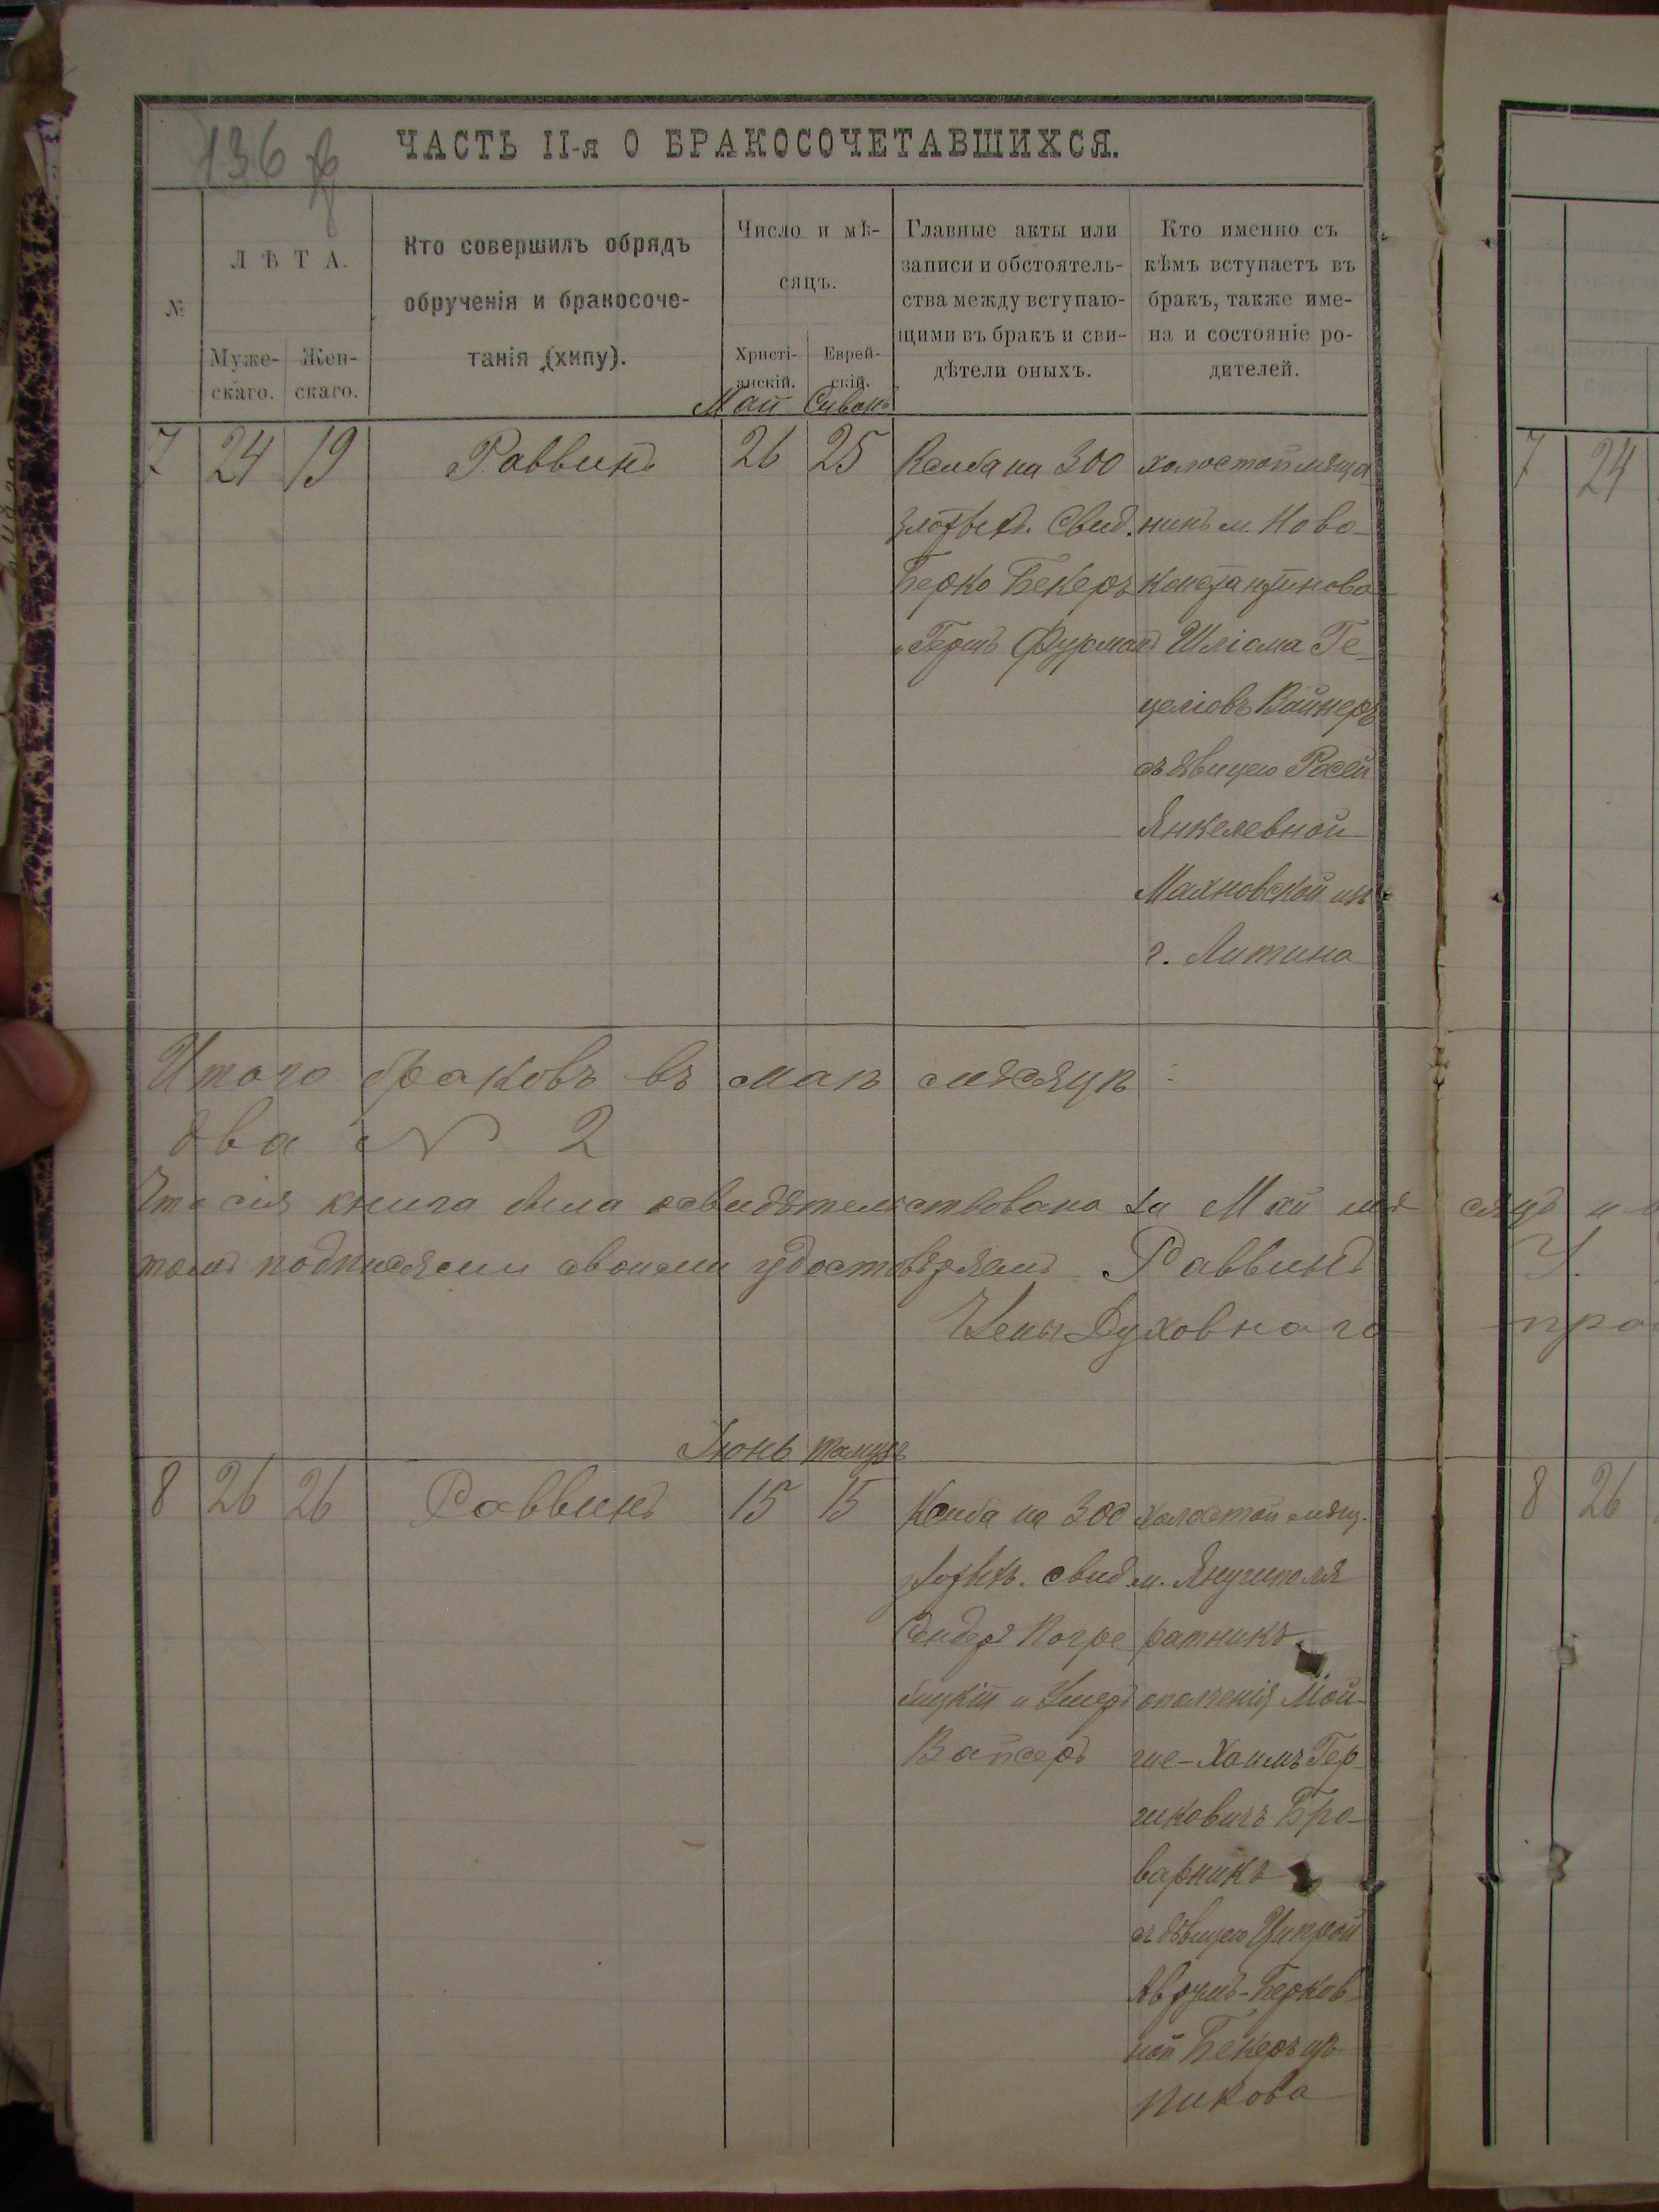 136
ЧАСТЬ II-я О БРАКОСОЧЕТАВШИХСЯ.
№
ЛѢТА.
Муже-
скаго.
Жен-
скаго.
Кто совершилъ обрядъ
обрученія и бракосоче-
танія (хипу).
Число и мѣ-
сяцъ.
Христі-
анскій.
Еврей-
скій.
Главные акты или
записи и обстоятель-
ства между вступаю-
щими въ бракъ и сви-
дѣтели оныхъ.
Кто именно съ
кѣмъ вступаетъ въ
бракъ, также име-
на и состояніе ро-
дителей.
Май Сивонъ
7 24 19 Раввинъ 26 25
Ксиба на 300
злотыхъ. Свид.
Берко Бекеръ
и Гершъ Фурманъ
холостой мѣща
нинъ м. Ново-
константинова
Шліома Ге-
целіовъ Вайнеръ
съ дѣвицею Росей
Янкелевной
Махновской изъ
г. Литина
Итого браковъ въ маѣ мѣсяцѣ:
два № 2
Что сія книга была освидѣтельствована за Май мѣ сяцъ и в
томъ подписями своими удостовѣряемъ Раввинъ
У.
Члены Духовнаго прав
Іюнь Тамузъ
8 26 26 Раввинъ 15 15
Ксиба на 300
злотыхъ. свид.
Сендеръ Погре
бицкій и Ушеръ
Вайсеръ
холостой мѣщ.
м. Янушполя
ратникъ
ополченія Мой-
ше-Хаимъ Гер-
шковичъ Бро-
варникъ
съ дѣвицею Ципрой
Аврумъ-Берков-
ной Бекеръ изъ
Пикова
7 24
8 26